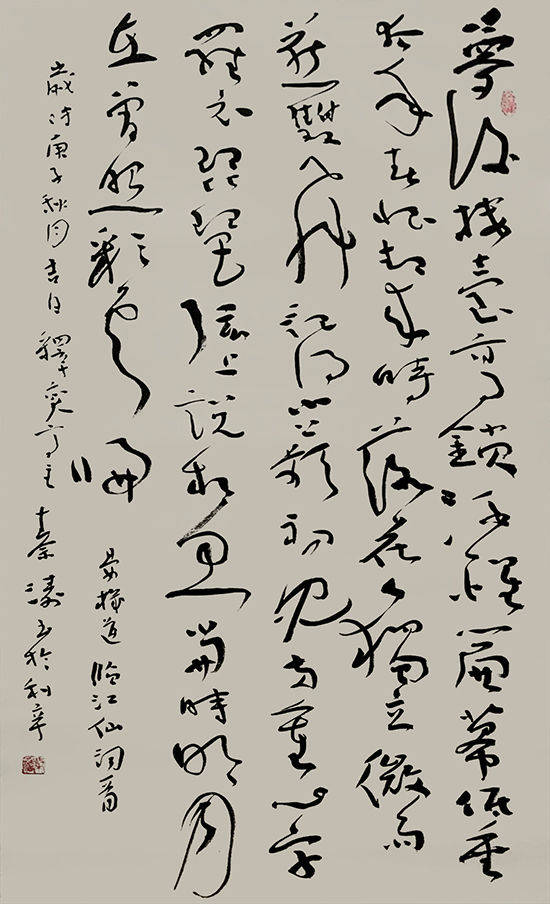 夢後樓臺高鎖酒醒簾幕低垂
去年春恨却来時落花人獨立微雨
燕雙飛記得小蘋初見兩重心字
羅衣琵琶弦上説相思當時明月
在曾照彩雲歸
晏幾道臨江仙詞一首
歲时庚子秋月吉日釋主秦濤书於利辛